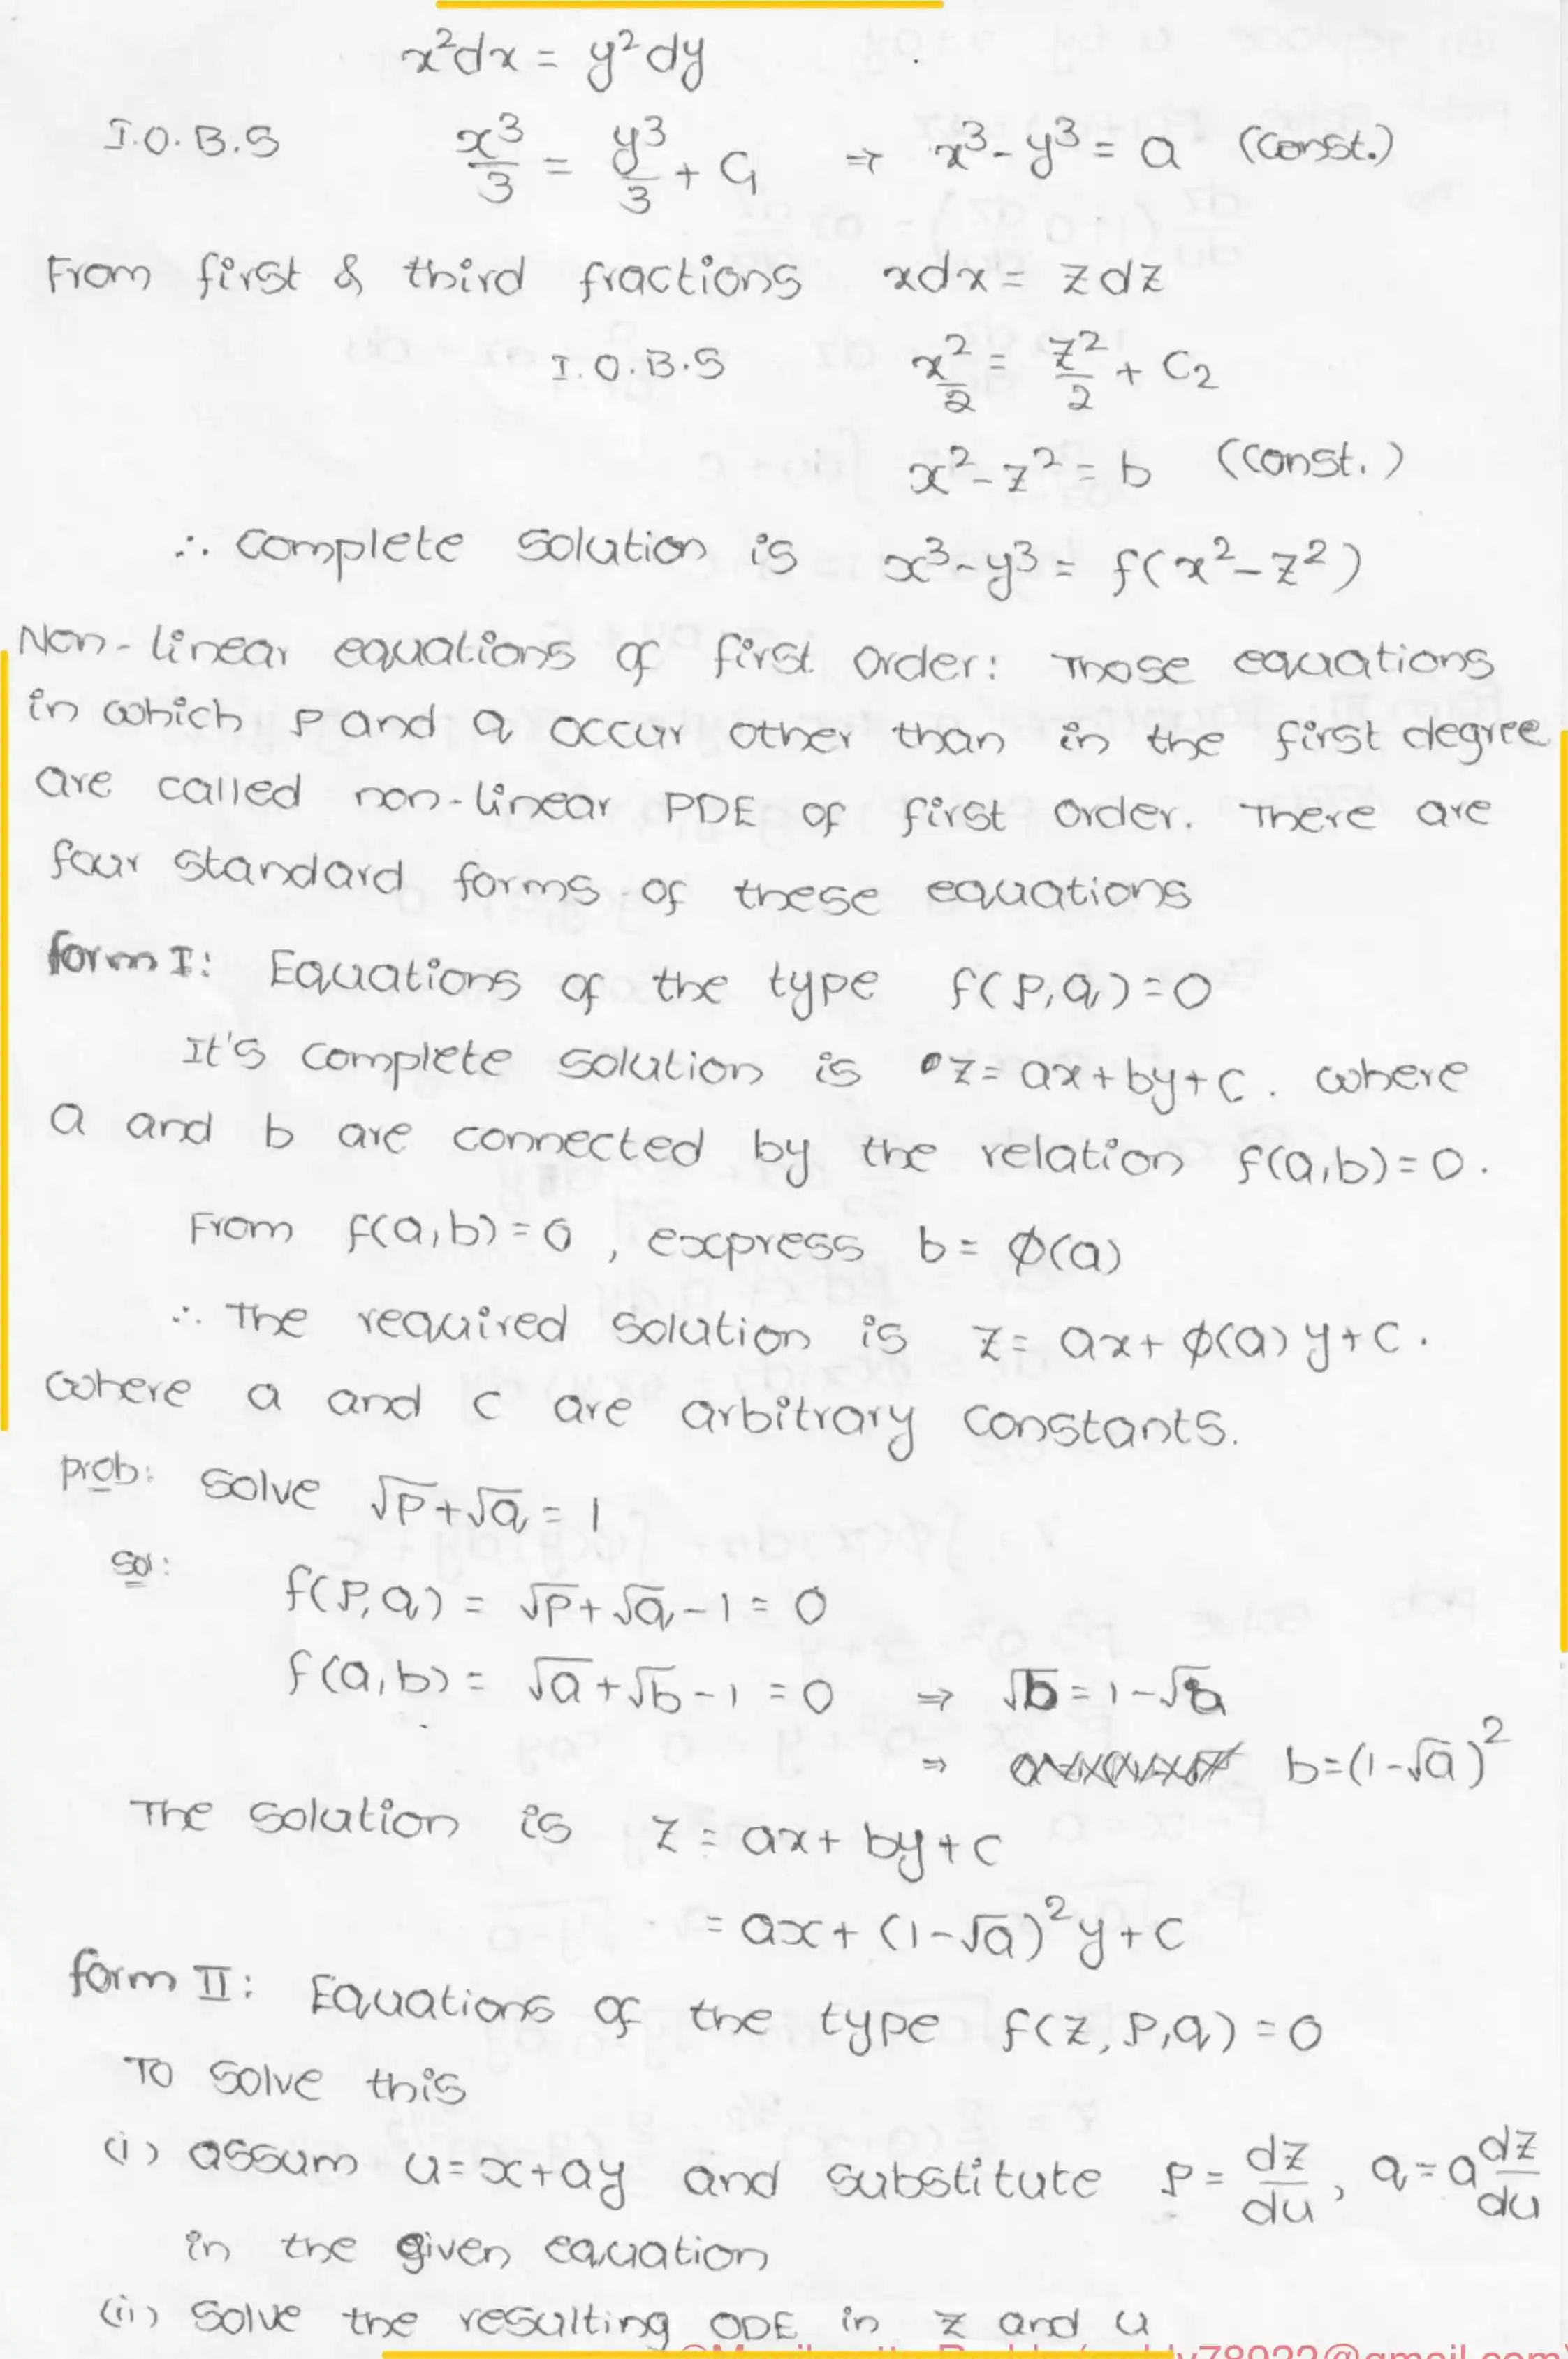 x²dx = y²dy
I.O.B.S x³/3 = y³/3 + C₁ ⇒ x³-y³ = a (Const.)
From first & third fractions xdx = zdz
I.O.B.S x²/2 = z²/2 + C₂
x²-z² = b (Const.)
∴ Complete Solution is x³-y³ = f(x²-z²)
Non-linear equations of first order: Those equations
in which p and q occur other than in the first degree
are called non-linear PDE of first order. There are
four standard forms of these equations
form I: Equations of the type f(p,q)=0
It's complete solution is z=ax+by+c. where
a and b are connected by the relation f(a,b)=0.
From f(a,b)=0, express b = φ(a)
∴ The required solution is z= ax+ φ(a) y+c.
where a and c are arbitrary constants.
prob: Solve √p+√q = 1
Sol:
f(p,q) = √p+√q-1 = 0
f(a,b) = √a+√b-1 = 0 ⇒ √b = 1-√a
⇒ b=(1-√a)²
The solution is z = ax+by+c
= ax+(1-√a)²y+c
form II: Equations of the type f(z,p,q)=0
To solve this
(i) assum u=x+ay and substitute p = dz/du, q=a dz/du
in the given equation
(ii) Solve the resulting ODE in z and u